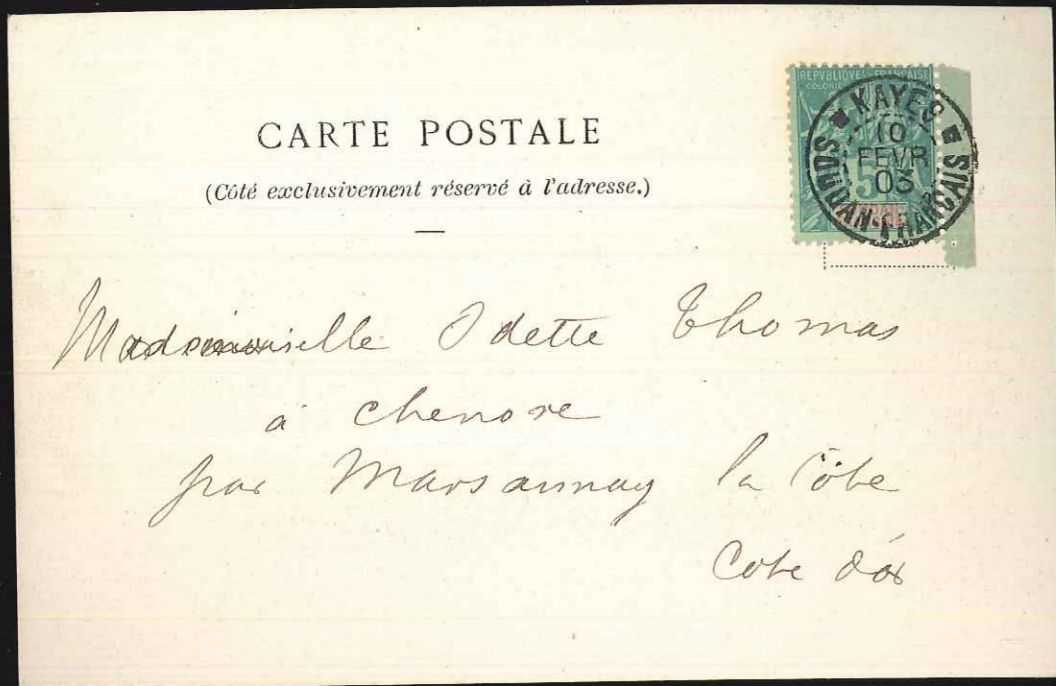 CARTE POSTALE
(Côté exclusivement réservé à l'adresse.)
REPVBLIQVE FRANÇAISE
COLONIES
5
KAYES
10
FEVR
03
SOUDAN-FRANCAIS
Mademoiselle Odette Thomas
à Chenove
par Marsannay la Côte
Cote d'or